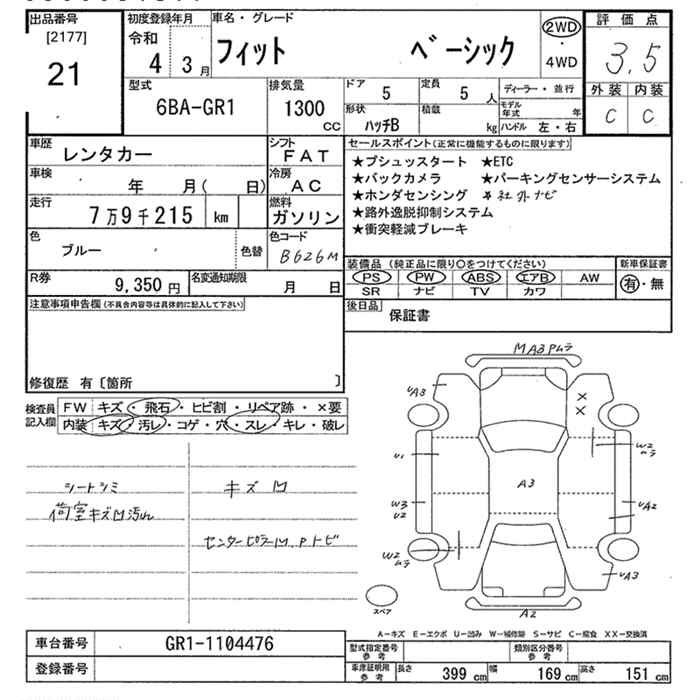 出品番号 初度登録年月 車名・グレード 評価点
[2177] 令和 フィット ベーシック 2WD ・ 4WD 3.5
21 4 3月
外装 内装
C C
型式 排気量 ドア 5 定員 5人 ディーラー・並行
6BA-GR1 1300 cc 形状 ハッチB 積載 kg モデル年式 年
ハンドル 左・右
車歴 レンタカー シフト FAT
車検 年 月( 日) 冷房 AC
走行 7万9千215 km 燃料 ガソリン
色 ブルー 色替 色コード B626M
R券 9,350円 名変通知期限 月 日
セールスポイント(正常に機能するものに限ります)
★プシュッスタート ★ETC
★バックカメラ ★パーキングセンサーシステム
★ホンダセンシング ★社外ナビ
★路外逸脱抑制システム
★衝突軽減ブレーキ
装備品(純正品に限り○をつけてください) 新車保証書
PS PW ABS エアB AW 有・無
SR ナビ TV カワ
後日品 保証書
注意事項申告欄(不具合内容等は具体的に記入して下さい)
修復歴 有〔箇所 〕
検査員記入欄 FW キズ・飛石・ヒビ割・リペア跡・×要
内装 キズ・汚レ・コゲ・穴・スレ・キレ・破レ
シートシミ
荷室キズ凹汚れ
キズ凹
センターピラー凹、Pトビ
MA3 Pムラ
UA3
×
×
U1
W2
ムラ
A3
W3
U2
UA2
W2
ムラ
UA3
A2
スペア
A-キズ E-エクボ U-凹み W-補修跡 S-サビ C-腐食 XX-交換済
車台番号 GR1-1104476
登録番号
型式指定番号 参考 類別区分番号 参考
車庫証明用 参考 長さ 399 cm 幅 169 cm 高さ 151 cm